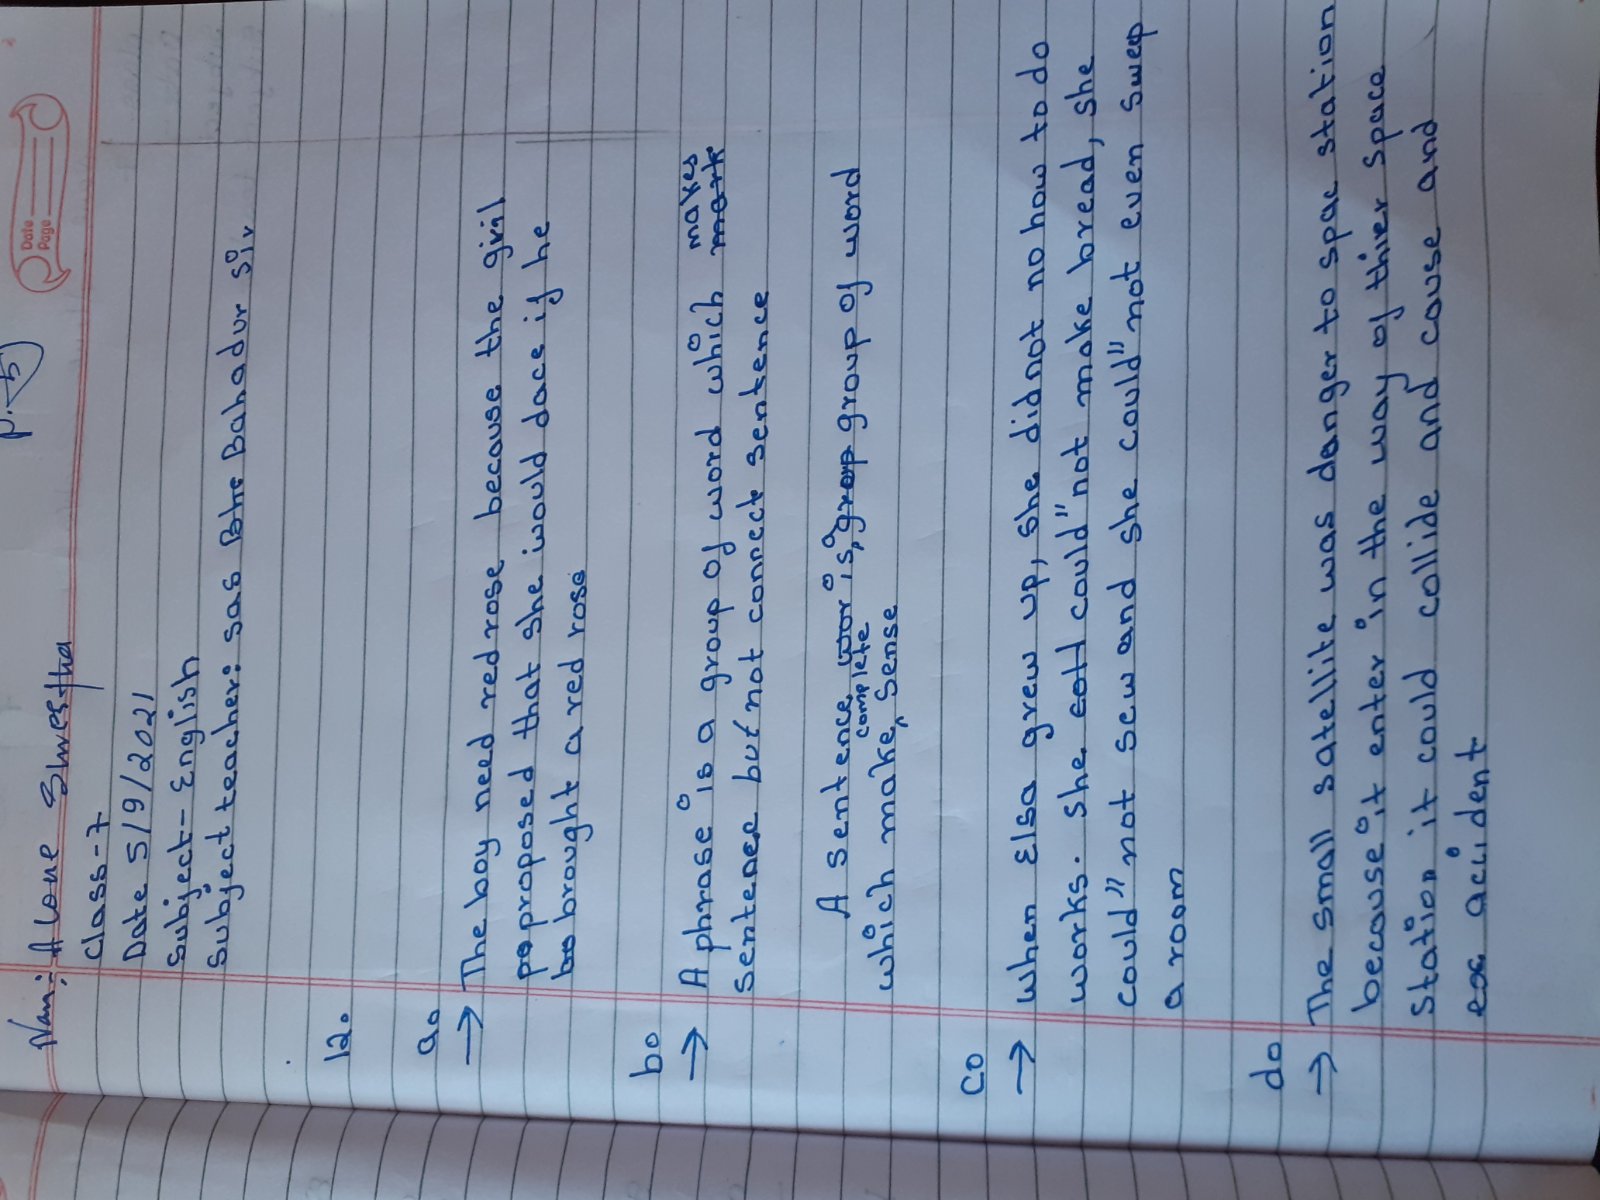 P.5
Date
Page
Nam:- Alone Shrestha
Class-7
Date 5/9/2021
Subject- English
Subject teacher: sas Bahadur sir
12.
a.
→ The boy need red rose because the giril
proposed that she would dace if he
brought a red rose
b.
→ A phrase is a group of word which makes
sentence but not connect sentence
A sentence is a group of word
which make complete sense
c.
→ When Elsa grew up, she did not no how to do
works. She could"not make bread, she
could"not sew and she could"not even sweep
a room
d.
→ The small satellite was danger to spac station
because it enter in the way of thier space
Station it could collide and couse and
accident